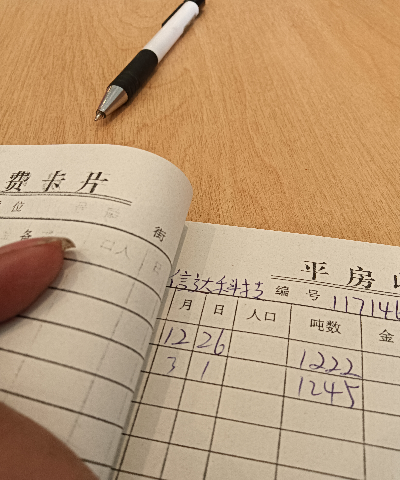 费卡片
位
街
平房
信达科技 编号 117146
月 日 人口 吨数 金
12 26 1222
3 1 1245